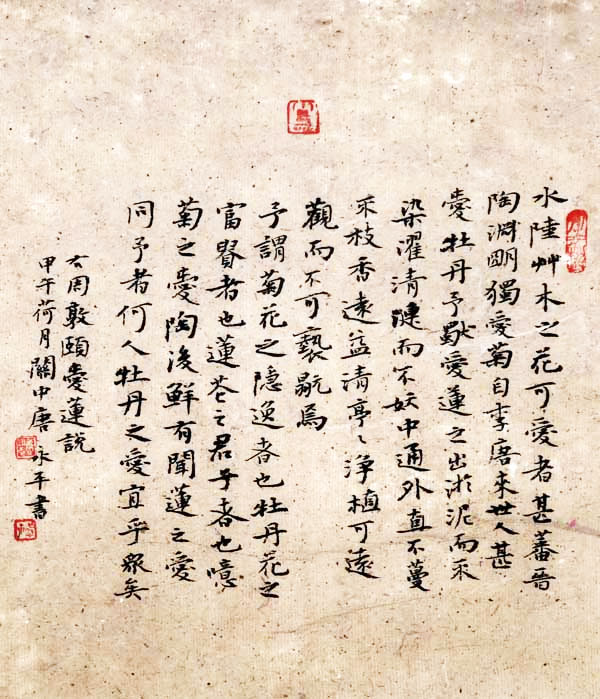 水陸艸木之花可愛者甚蕃晉
陶淵明獨愛菊自李唐来世人甚
愛牡丹予獨愛蓮之出淤泥而不
染濯清漣而不妖中通外直不蔓
不枝香遠益清亭〻淨植可遠
觀而不可褻翫焉
予謂菊花之隱逸者也牡丹花之
富貴者也蓮花之君子者也噫
菊之愛陶後鮮有聞蓮之愛
同予者何人牡丹之愛宜乎眾矣
右周敦頤愛蓮說
甲午荷月關中唐永平書